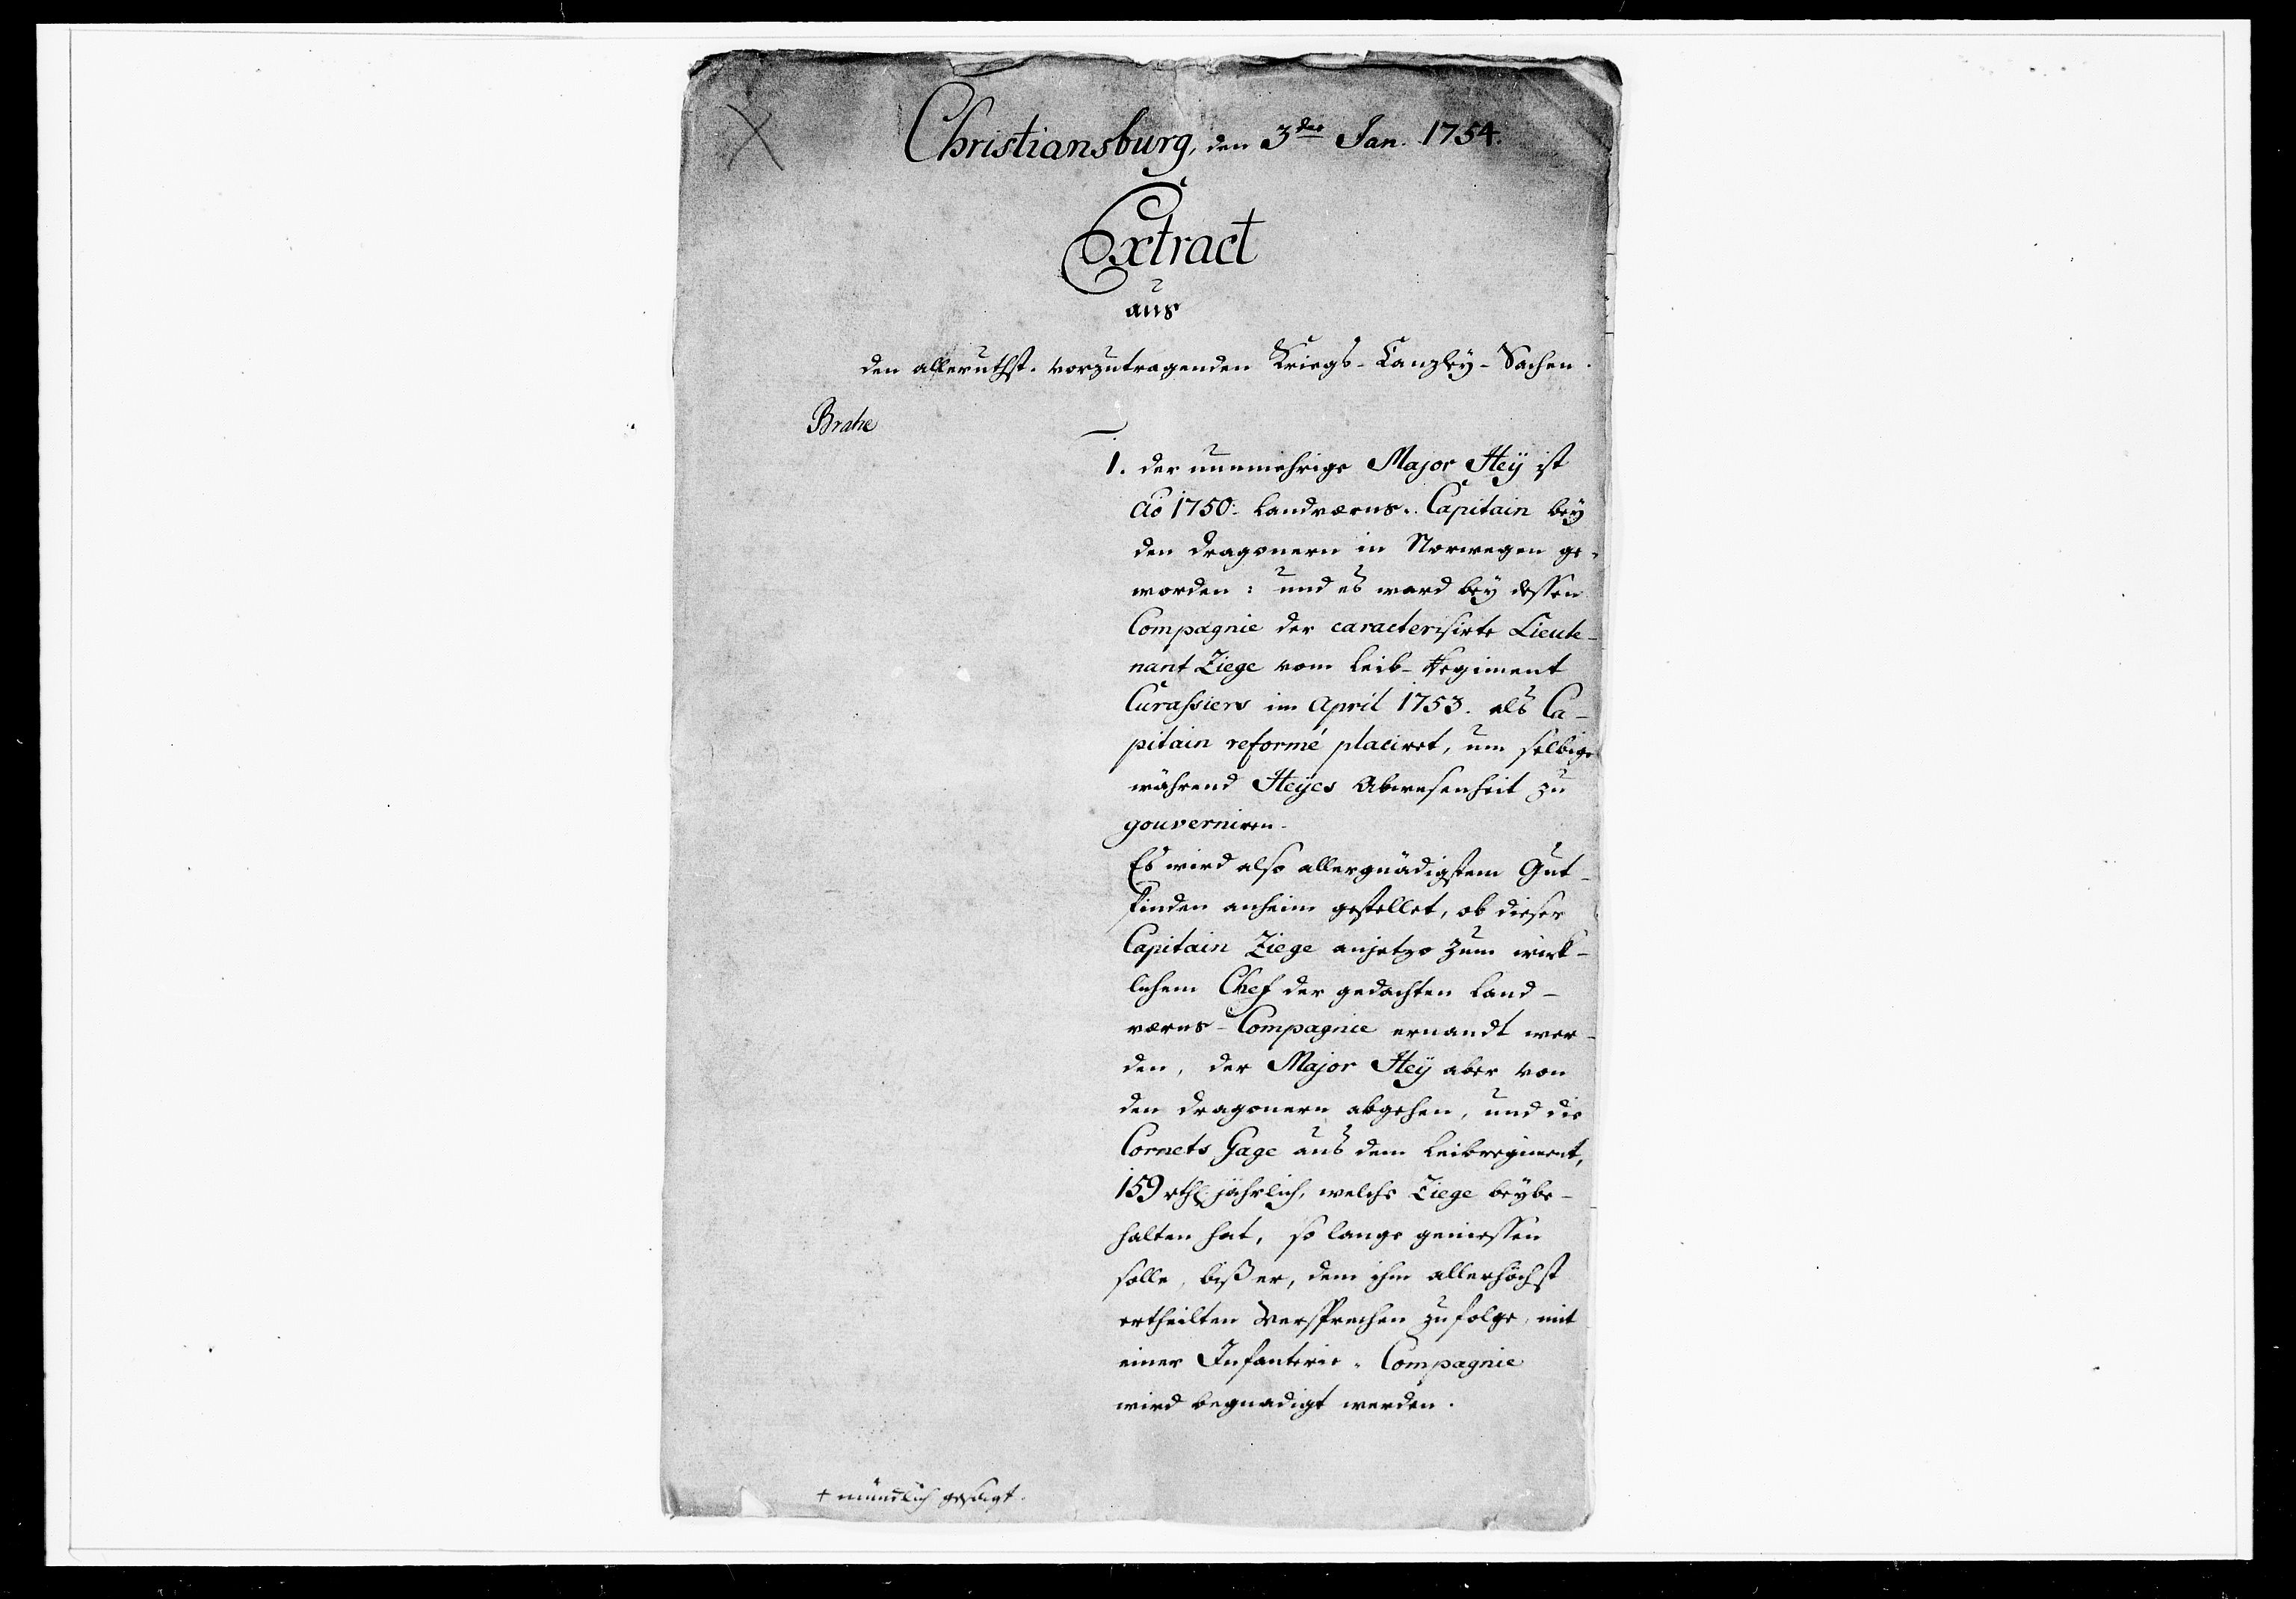 Christiansburg, den 3ten Jan. 1754.
Extract
aus
den alleruthst. vorzutragenden Kriegs-Canzley-Sachen.
Brahe
1. der nunmehrige Major Heÿ ist
Ao 1750. Landværns-Capitain bey
den Dragonern in Norwegen ge-
worden: und es ward bey dessen
Compagnie der caracterisirte Lieute-
nant Ziege vom Leib-Regiment
Curassiers im April 1753. als Ca-
pitain reformé placiret, um selbige
während Heÿes Abwesenheit zu
gouverniren.
Es wird also allergnädigstem Gut-
finden anheim gestellet, ob dieser
Capitain Ziege anjetzo zum würk-
lichem Chef der gedachten Land-
værns-Compagnie ernandt wer-
den, der Major Heÿ aber von
den Dragonern abgehen, und die
Cornets Gage aus dem Leibregiment,
159 rthl. jährlich, welche Ziege beybe-
halten hat, so lange geniessen
solle, biß er, dem ihm allerhöchst
ertheilten Versprechen zufolge, mit
einer Infanterie-Compagnie
wird begnadigt werden.
+ mündlich gesagt.